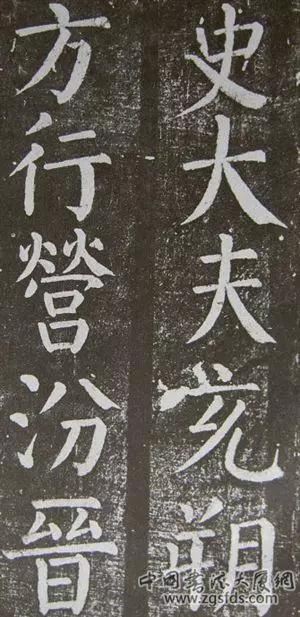 史大夫充朔
方行營汾晉
中国书法大展网
www.zgsfds.com